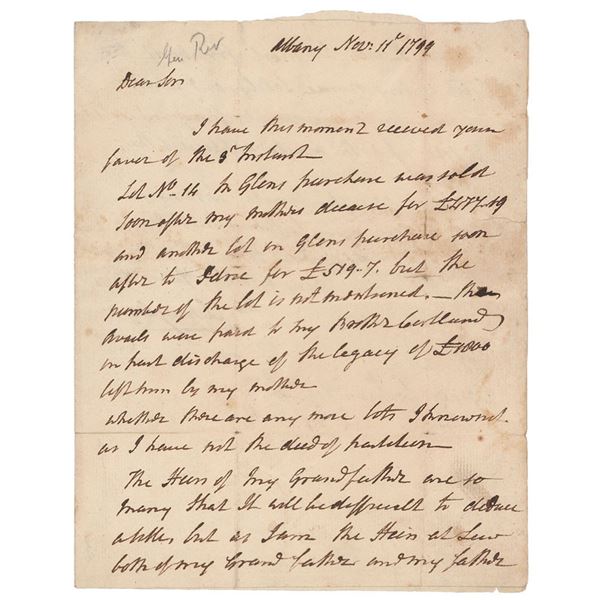 Gen Rev
Albany Nov: 11t 1799
Dear Sir
I have this moment received your
favor of the 3d Instant
Lot No. 14 In Glens purchase was sold
soon after my mothers decease for £477.19
and another lot in Glens purchase soon
after to for £519-7. but the
number of the lot is not mentioned. — The
avails were paid to my Brother Cortland
in part discharge of the legacy of £1800
left him by my mother
whether there are any more lots I know not
as I have not the deed of partition
The Heirs of my Grandfather are so
many that It will be difficult to deduce
a title, but as I am the Heir at Law
both of my Grand father and my father